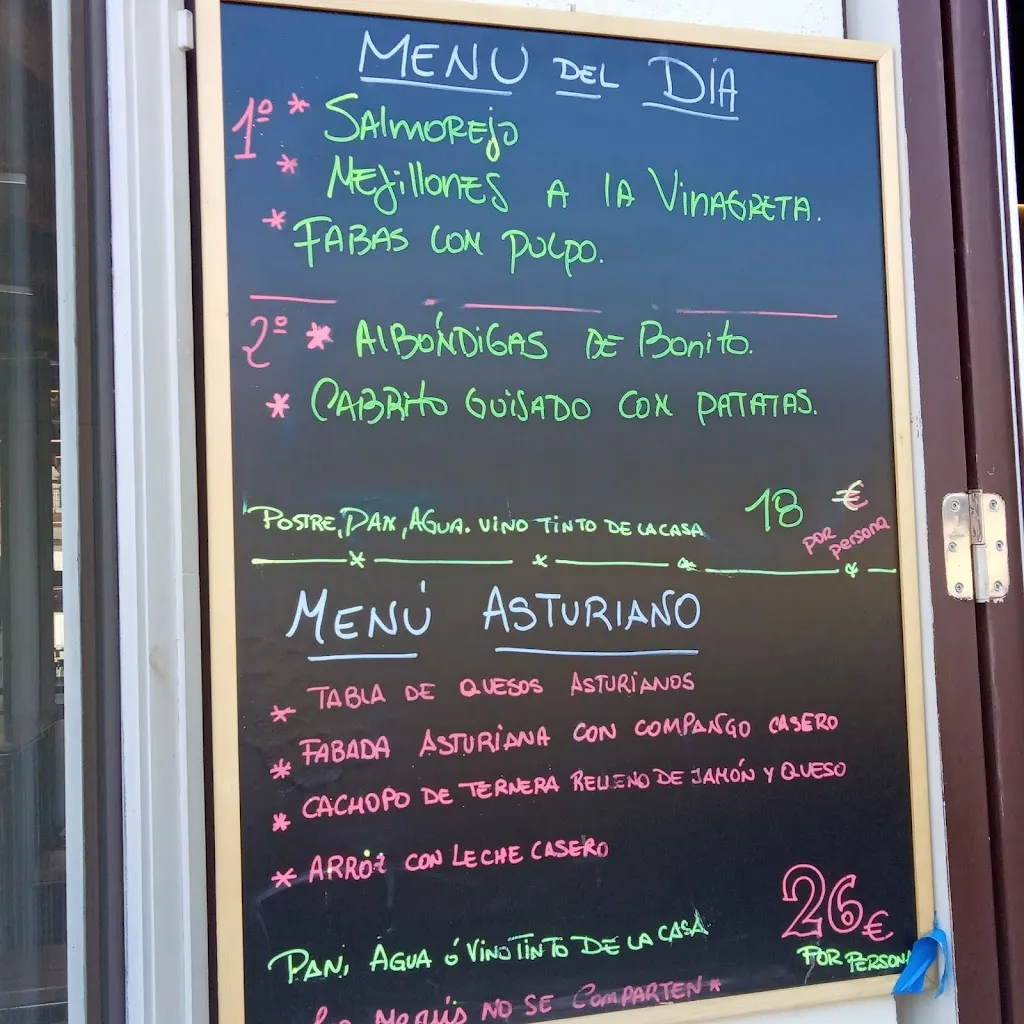 MENU DEL DÍA
1º * SALMOREJO
* MEJILLONES A LA VINAGRETA.
* FABAS CON PULPO.
2º * ALBÓNDIGAS DE BONITO.
* CABRITO GUISADO CON PATATAS.
POSTRE, PAN, AGUA. VINO TINTO DE LA CASA 18 €
por persona
MENÚ ASTURIANO
* TABLA DE QUESOS ASTURIANOS
* FABADA ASTURIANA CON COMPANGO CASERO
* CACHOPO DE TERNERA RELLENO DE JAMÓN Y QUESO
* ARRÓZ CON LECHE CASERO
26€
PAN, AGUA Ó VINO TINTO DE LA CASA POR PERSONA
MENÚS NO SE COMPARTEN *